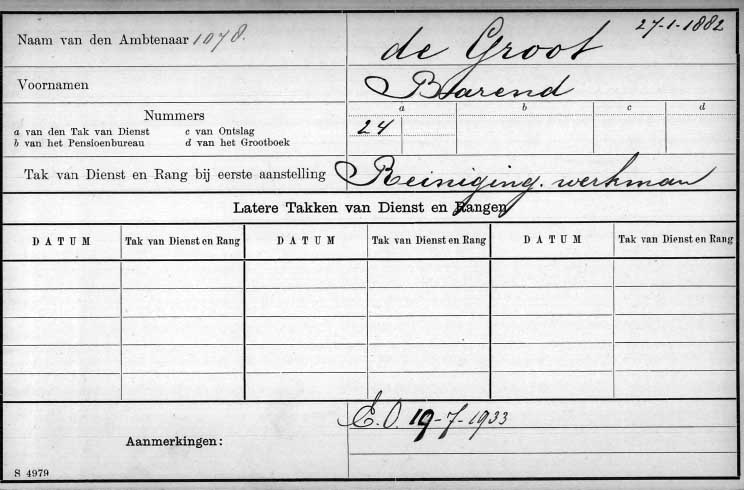 27-1-1882
Naam van den Ambtenaar 1078. de Groot
Voornamen Barend
Nummers
a b c d
a van den Tak van Dienst c van Ontslag
b van het Pensioenbureau d van het Grootboek
24
Tak van Dienst en Rang bij eerste aanstelling Reiniging. werkman
Latere Takken van Dienst en Rangen
DATUM Tak van Dienst en Rang DATUM Tak van Dienst en Rang DATUM Tak van Dienst en Rang
E.O. 19-7-1933
Aanmerkingen:
S 4979